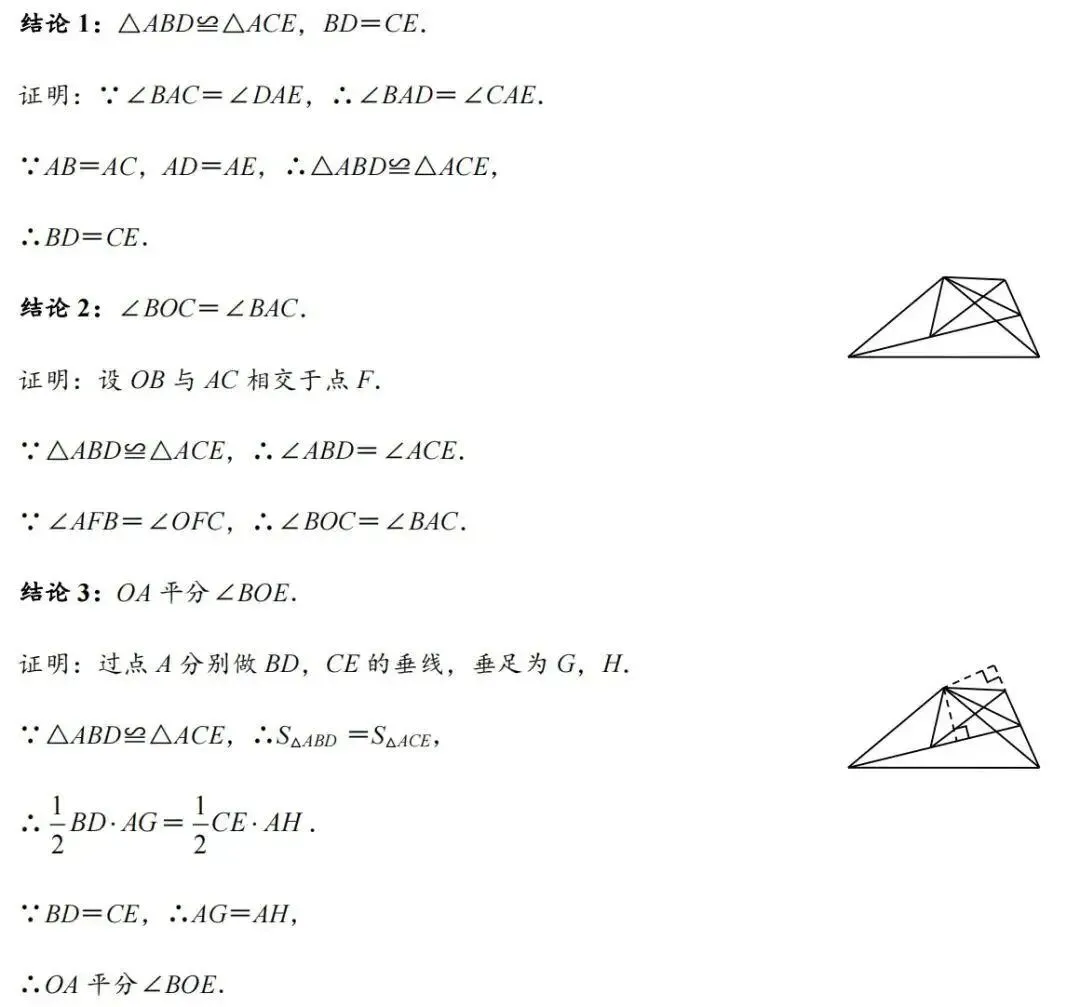 结论 1：△ABD≌△ACE，BD＝CE．
证明：∵∠BAC＝∠DAE，∴∠BAD＝∠CAE．
∵AB＝AC，AD＝AE，∴△ABD≌△ACE，
∴BD＝CE．
结论 2：∠BOC＝∠BAC．
证明：设 OB 与 AC 相交于点 F．
∵△ABD≌△ACE，∴∠ABD＝∠ACE．
∵∠AFB＝∠OFC，∴∠BOC＝∠BAC．
结论 3：OA 平分∠BOE．
证明：过点 A 分别做 BD，CE 的垂线，垂足为 G，H．
∵△ABD≌△ACE，∴S△ABD ＝S△ACE，
∴1/2BD·AG＝1/2CE·AH．
∵BD＝CE，∴AG＝AH，
∴OA 平分∠BOE．